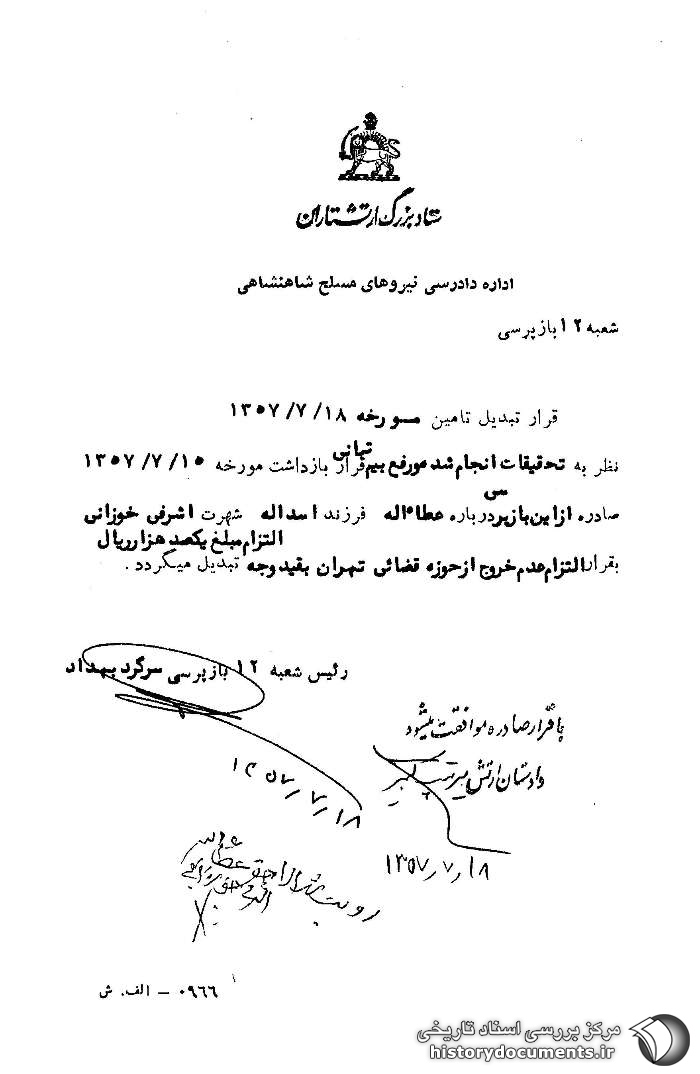 ستاد بزرگ ارتشتاران
اداره دادرسی نیروهای مسلح شاهنشاهی
شعبه ۱۲ بازپرسی
قرار تبدیل تامین مورخه ۱۳۵۷/۷/۱۸
نظر به تحقیقات انجام شده و رفع بیم تبانی قرار بازداشت مورخه ۱۳۵۷/۷/۱۵
صادره از این بازپرسی درباره عطاءاله فرزند اسداله شهرت اشرفی خوزانی
التزام مبلغ یکصد هزار ریال
بقرار التزام عدم خروج از حوزه قضائی تهران بقید وجه تبدیل میگردد .
رئیس شعبه ۱۲ بازپرسی سرگرد بهداد
۱۳۵۷/۷/۱۸
با قرار صادره موافقت میشود
دادستان ارتش سرتیپ
۱۳۵۷/۷/۱۸
رویت شد
۰۹۶۶ – الف. ش
مرکز بررسی اسناد تاریخی
historydocuments.ir